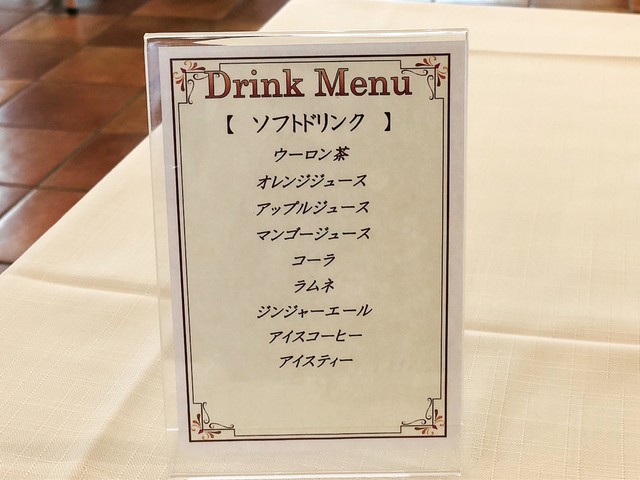 Drink Menu
【 ソフトドリンク 】
ウーロン茶
オレンジジュース
アップルジュース
マンゴージュース
コーラ
ラムネ
ジンジャーエール
アイスコーヒー
アイスティー